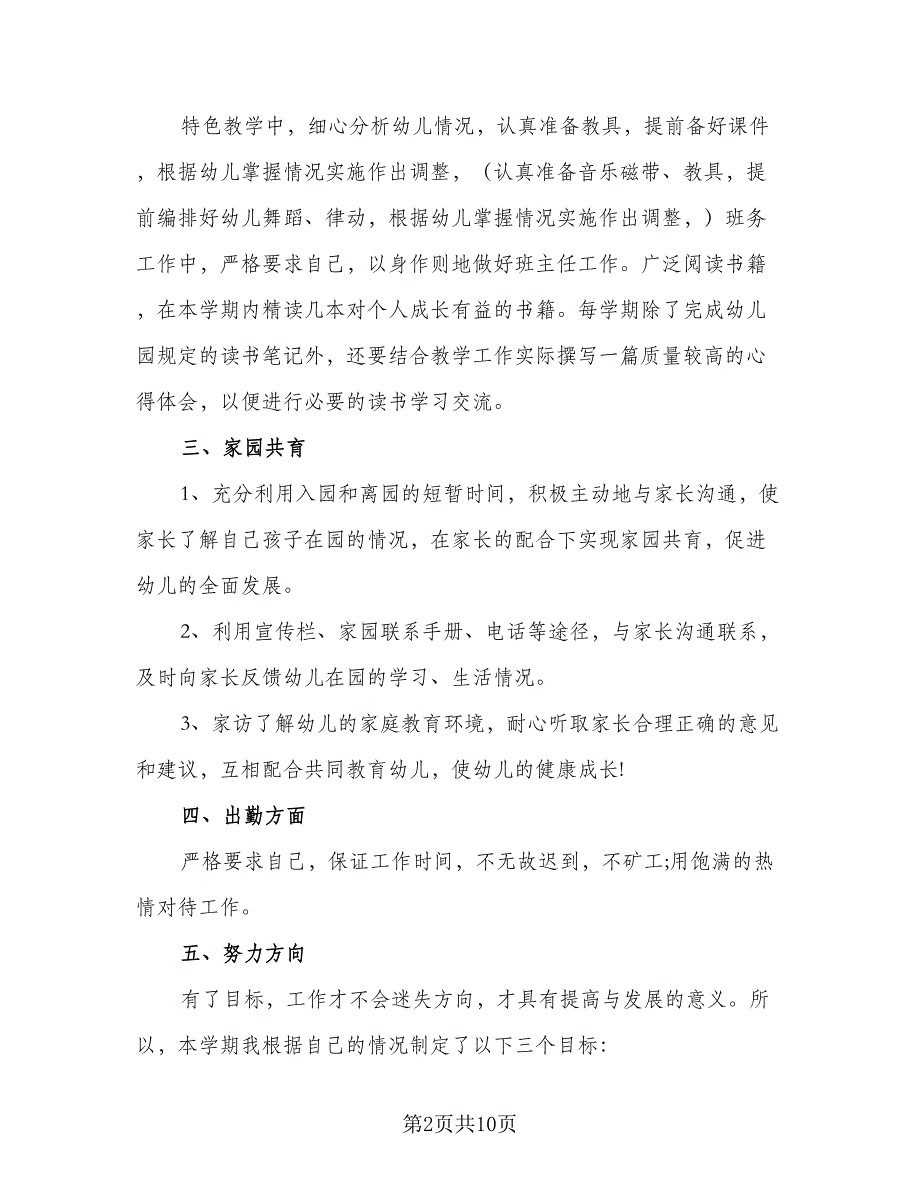 特色教学中，细心分析幼儿情况，认真准备教具，提前备好课件
，根据幼儿掌握情况实施作出调整，（认真准备音乐磁带、教具，提
前编排好幼儿舞蹈、律动，根据幼儿掌握情况实施作出调整，）班务
工作中，严格要求自己，以身作则地做好班主任工作。广泛阅读书籍
，在本学期内精读几本对个人成长有益的书籍。每学期除了完成幼儿
园规定的读书笔记外，还要结合教学工作实际撰写一篇质量较高的心
得体会，以便进行必要的读书学习交流。
三、家园共育
1、充分利用入园和离园的短暂时间，积极主动地与家长沟通，使
家长了解自己孩子在园的情况，在家长的配合下实现家园共育，促进
幼儿的全面发展。
2、利用宣传栏、家园联系手册、电话等途径，与家长沟通联系，
及时向家长反馈幼儿在园的学习、生活情况。
3、家访了解幼儿的家庭教育环境，耐心听取家长合理正确的意见
和建议，互相配合共同教育幼儿，使幼儿的健康成长!
四、出勤方面
严格要求自己，保证工作时间，不无故迟到，不矿工;用饱满的热
情对待工作。
五、努力方向
有了目标，工作才不会迷失方向，才具有提高与发展的意义。所
以，本学期我根据自己的情况制定了以下三个目标：
第2页共10页